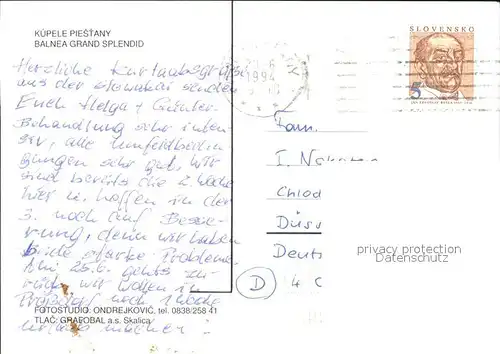 KÚPELE PIEŠŤANY
BALNEA GRAND SPLENDID
Herzliche Kurlaubsgrüße
aus der Slowakei senden
Euch Helga + Günter.
Behandlung sehr inten-
siv, alle Umfeldbedin-
gungen sehr gut. Wir
sind bereits die 2. Woche
hier u. hoffen in der
3. noch auf Besse-
rung, denn wir haben
beide starke Probleme.
Am 25.6. gehts zu-
rück, wir wollen in
noch 1 Woche
Urlaub machen.
FOTOSTUDIO: ONDREJKOVIČ, tel. 0838/258 41
TLAČ: GRAFOBAL a.s. Skalica
1994
SLOVENSKO
5
Fam.
I.
Düss
Deuts
D
4
privacy protection
Datenschutz